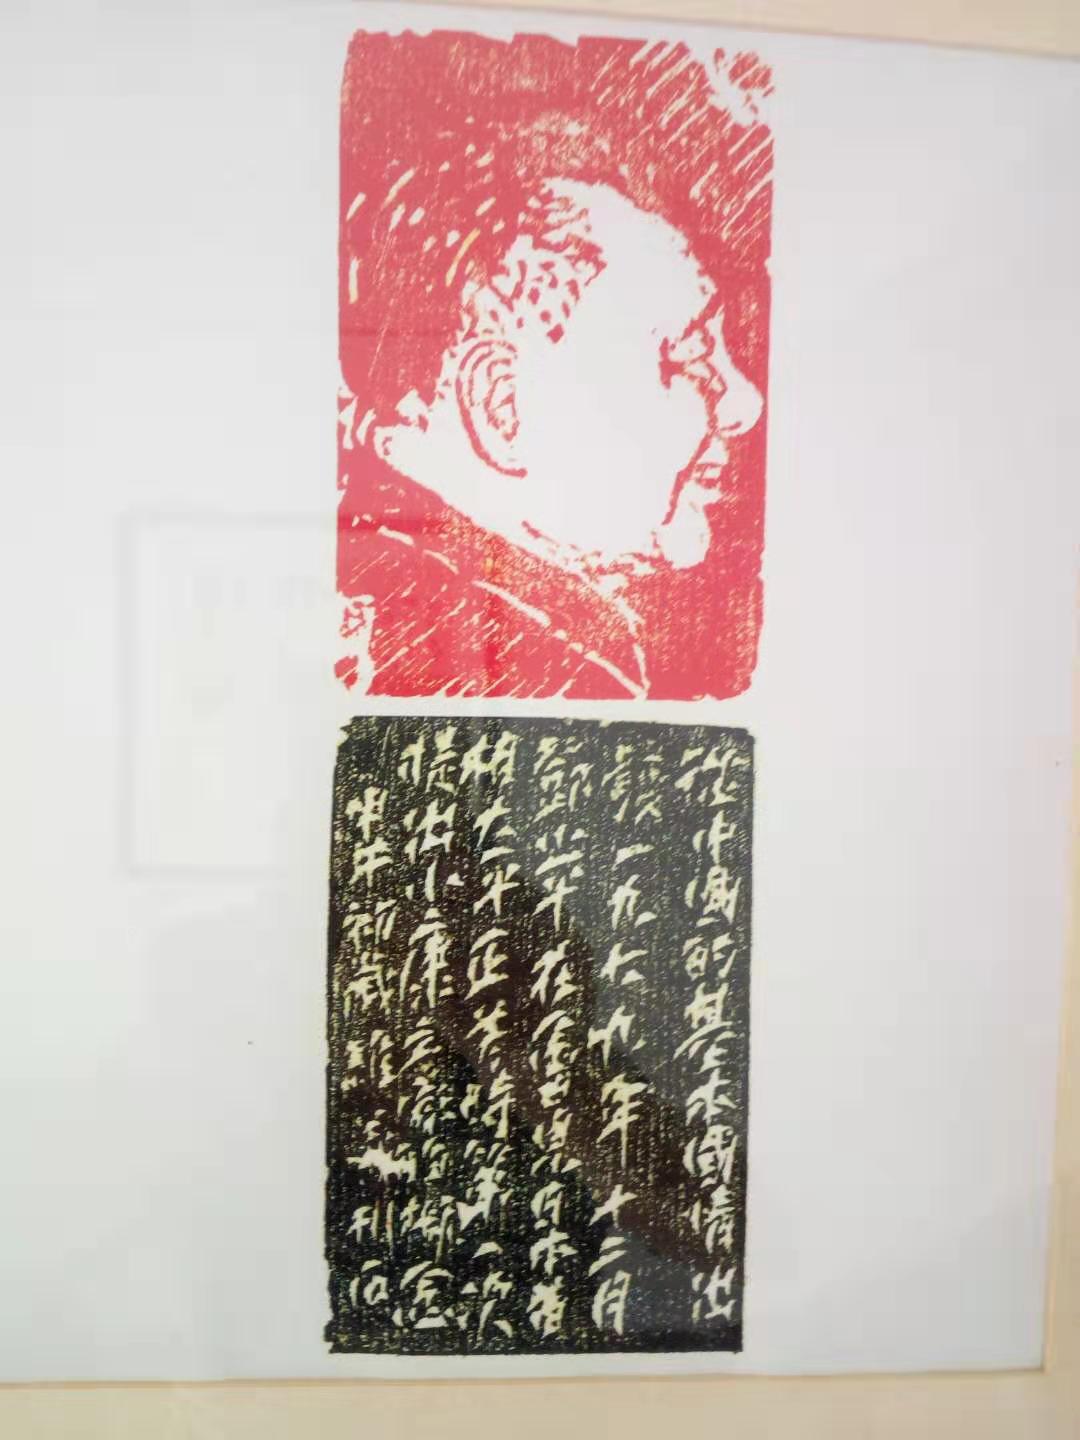 從中國的基本國情出
發一九七九年十二月
鄧小平在會見日本首
相大平正芳時第一次
提出小康之家念
甲午初歲刊石